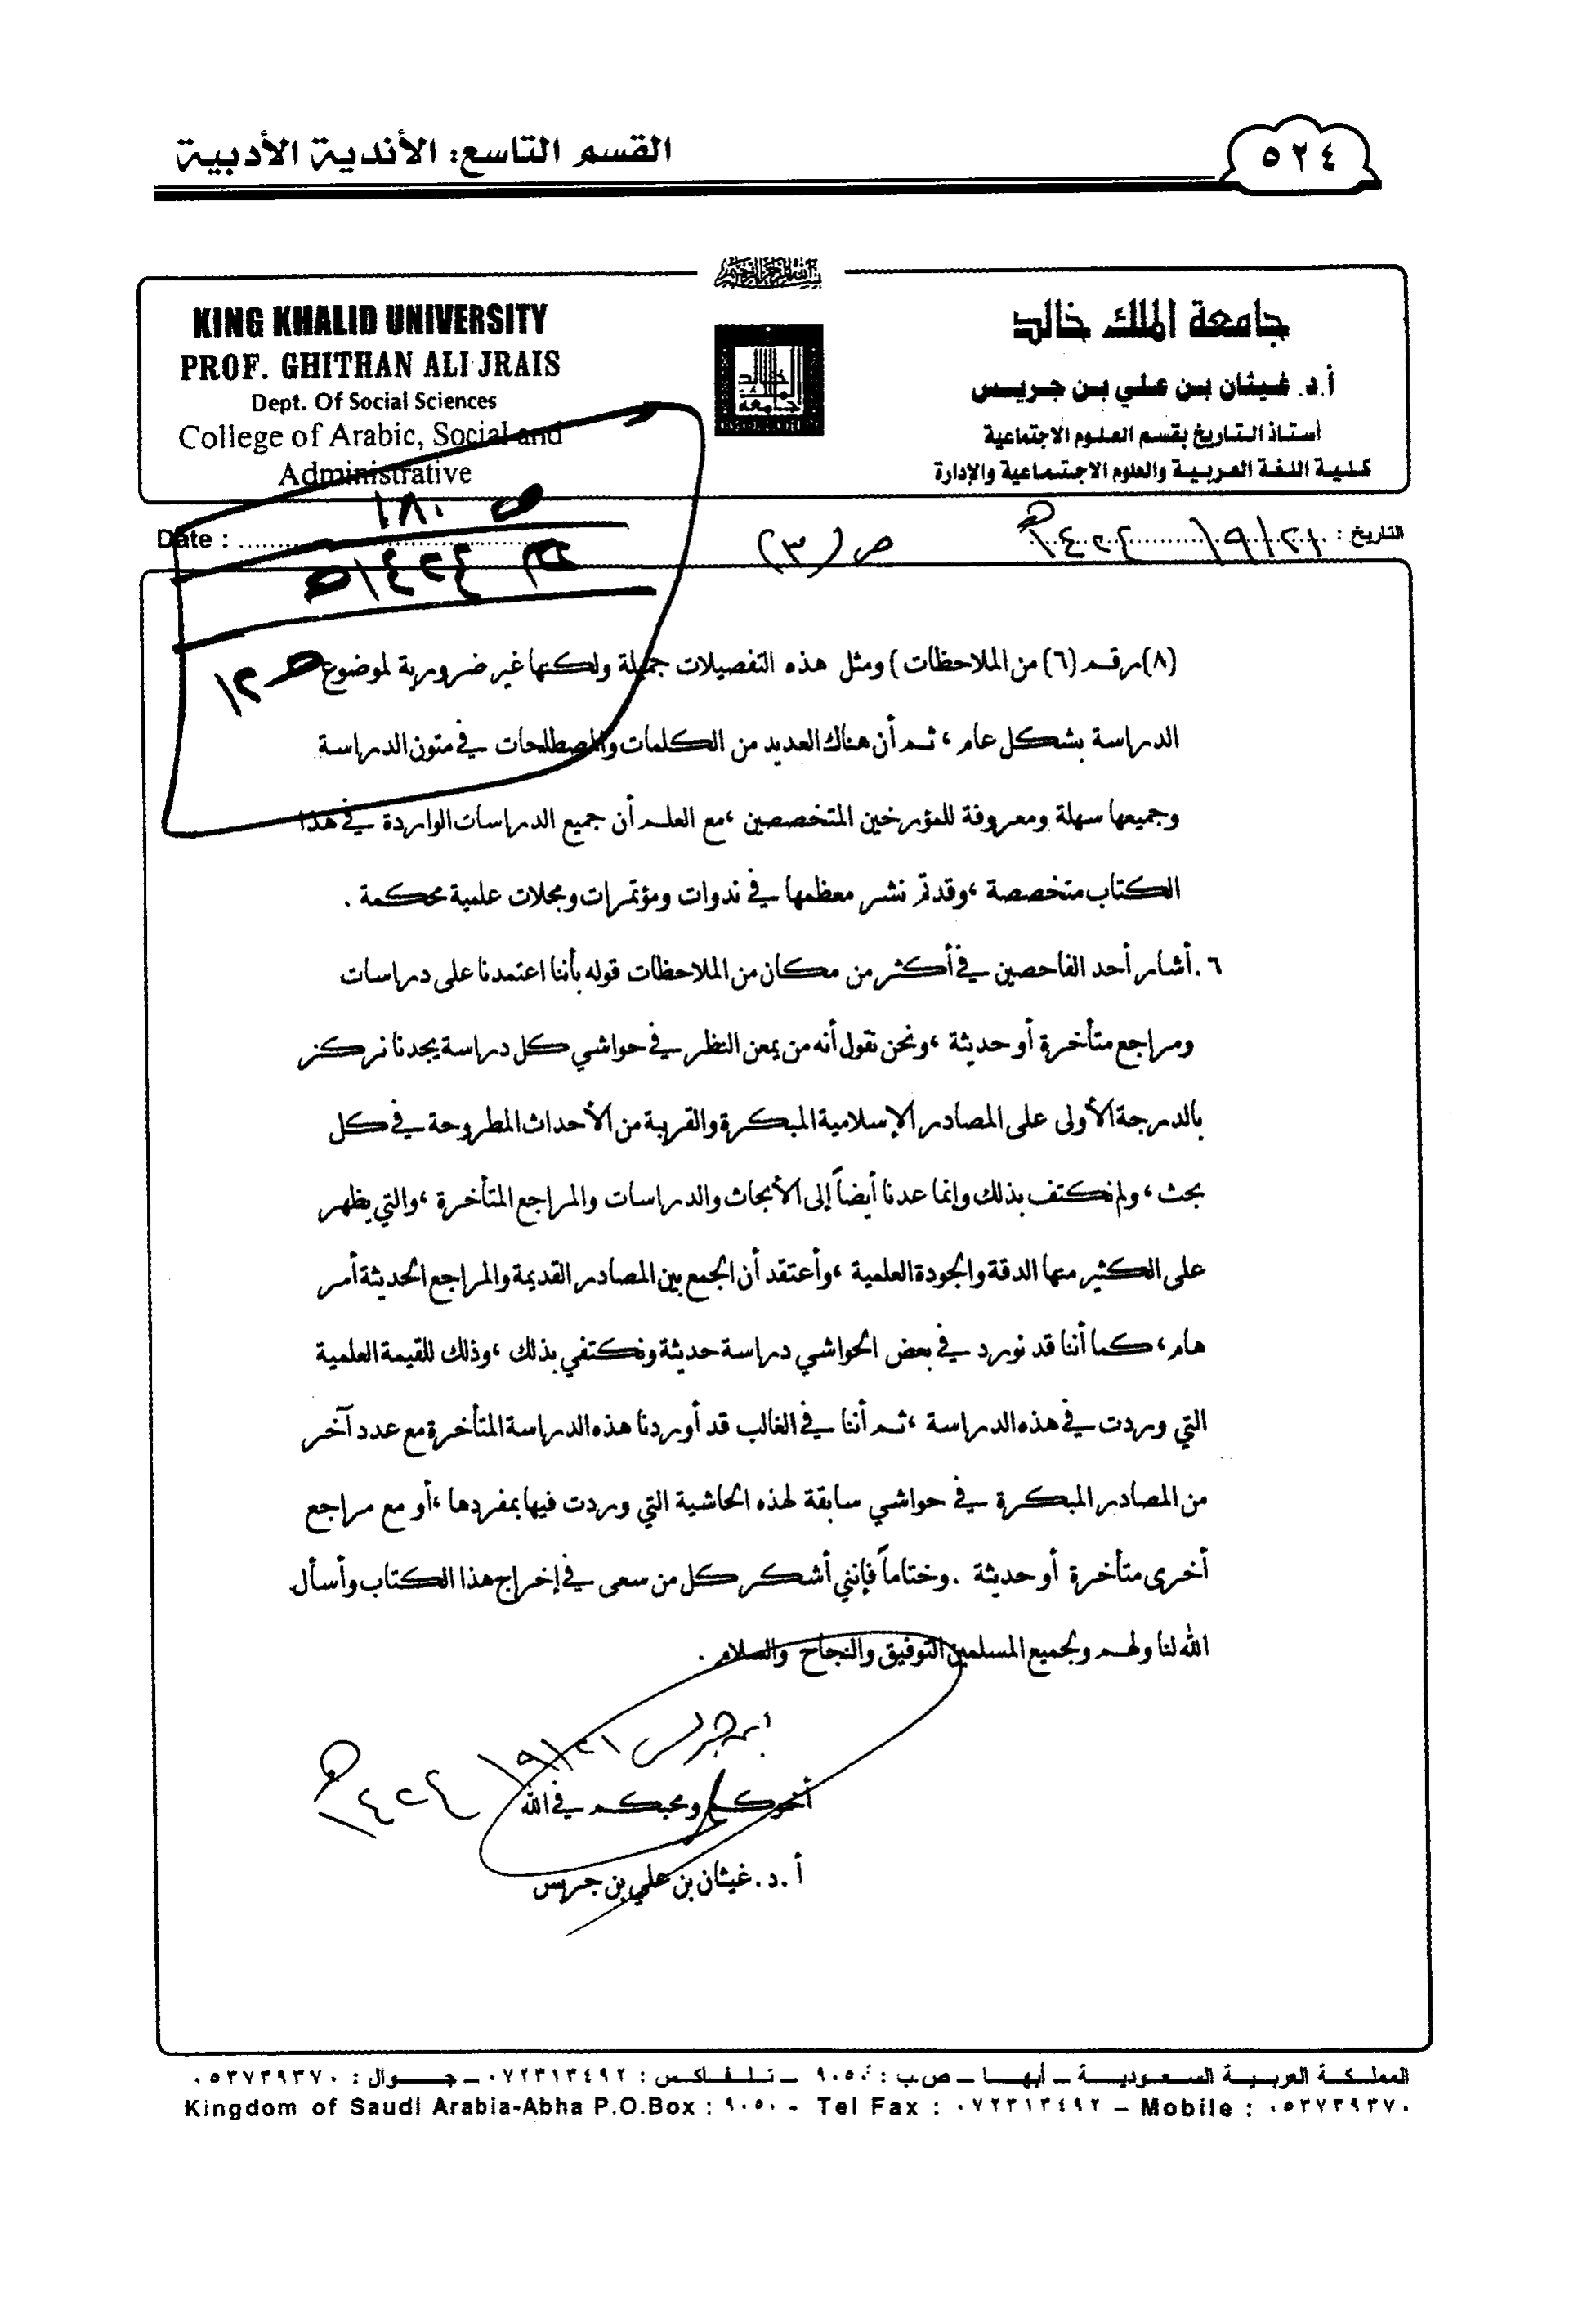 ٥٢٤
القسم التاسع: الأندية الأدبية
بسم الله الرحمن الرحيم
جامعة الملك خالد
أ.د. غيثان بن علي بن جريس
أستاذ التاريخ بقسم العلوم الاجتماعية
كلية اللغة العربية والعلوم الاجتماعية والإدارة
KING KHALID UNIVERSITY
PROF. GHITHAN ALI JRAIS
Dept. Of Social Sciences
College of Arabic, Social and
Administrative
جامعة الملك خالد
التاريخ : ٢١/٩/١٤٢٤هـ
ص (٣)
Date :
١٨٠
١٤٢٤
(٨) رقم (٦) من الملاحظات) ومثل هذه التفصيلات جميلة ولكنها غير ضرورية لموضوع
الدراسة بشكل عام ، ثم أن هناك العديد من الكلمات والمصطلحات في متون الدراسة
وجميعها سهلة ومعروفة للمؤرخين المتخصصين ،مع العلم أن جميع الدراسات الواردة في هذا
الكتاب متخصصة ،وقد تم نشر معظمها في ندوات ومؤتمرات ومجلات علمية محكمة .
٦. أشار أحد الفاحصين في أكثر من مكان من الملاحظات قوله بأننا اعتمدنا على دراسات
ومراجع متأخرة أو حديثة ،ونحن نقول أنه من يمعن النظر في حواشي كل دراسة يجدنا نركز
بالدرجة الأولى على المصادر الإسلامية المبكرة والقريبة من الأحداث المطروحة في كل
بحث ، ولم نكتف بذلك وإنما عدنا أيضاً إلى الأبحاث والدراسات والمراجع المتأخرة ،والتي يظهر
على الكثير منها الدقة والجودة العلمية ،وأعتقد أن الجمع بين المصادر القديمة والمراجع الحديثة أمر
هام، كما أننا قد نورد في بعض الحواشي دراسة حديثة ونكتفي بذلك ،وذلك للقيمة العلمية
التي وردت في هذه الدراسة ،ثم أننا في الغالب قد أوردنا هذه الدراسة المتأخرة مع عدد آخر
من المصادر المبكرة في حواشي سابقة لهذه الحاشية التي وردت فيها بمفردها ،أو مع مراجع
أخرى متأخرة أو حديثة .وختاماً فإنني أشكر كل من سعى في إخراج هذا الكتاب وأسأل
الله لنا ولهم ولجميع المسلمين التوفيق والنجاح والسلام .
ابن جريس ٢١/٩/١٤٢٤هـ
أخوكم ومحبكم في الله
أ.د. غيثان بن علي بن جريس
المملكة العربية السعودية – أبها – ص.ب : ٩٠٥٠ – تلفاكس : ٠٧٢٣١٣٤٩٢ – جوال : ٠٥٣٧٣٩٣٧٠
Kingdom of Saudi Arabia-Abha P.O.Box : ٩٠٥٠ - Tel Fax : ٠٧٢٣١٣٤٩٢ – Mobile : ٠٥٣٧٣٩٣٧٠